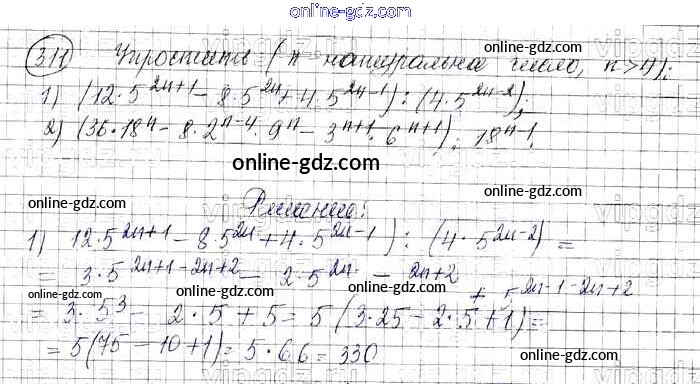 online-gdz.com
311 Упростить (n натуральное число, n>4):
online-gdz.com
1) (12·5^{2n+1} - 8·5^{2n} + 4·5^{2n-1}) : (4·5^{2n-2});
2) (36·18^n - 8·2^{n-4}·9^n - 3^{n+1}·6^{n+1}) : 18^{n-1}.
online-gdz.com
online-gdz.com online-gdz.com
Решение:
1) 12·5^{2n+1} - 8·5^{2n} + 4·5^{2n-1}) : (4·5^{2n-2}) =
online-gdz.com
= 3·5^{2n+1-2n+2} - 2·5^{2n - 2n+2} + 5^{2n-1-2n+2}
online-gdz.com online-gdz.com
= 3·5^3 - 2·5 + 5 = 5(3·25 - 2·5 + 1) =
= 5(75 - 10 + 1) = 5·66 = 330
online-gdz.com online-gdz.com